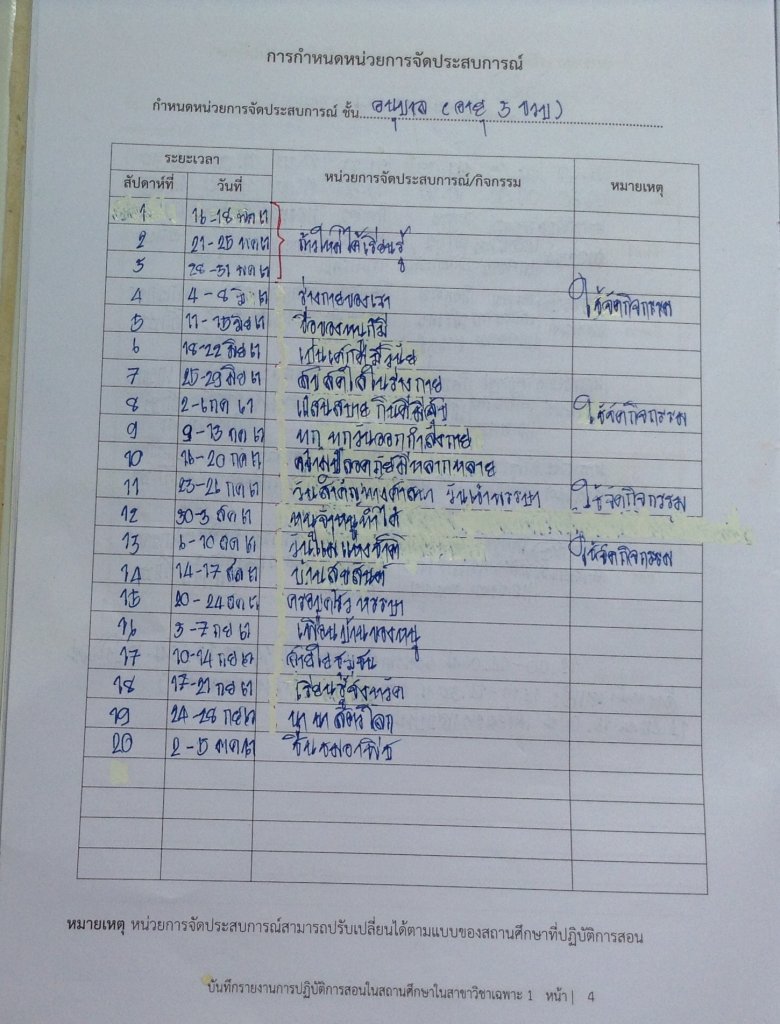 การกำหนดหน่วยการจัดประสบการณ์
กำหนดหน่วยการจัดประสบการณ์ ชั้น อนุบาล (อายุ 3 ขวบ)
ระยะเวลา หน่วยการจัดประสบการณ์/กิจกรรม หมายเหตุ
สัปดาห์ที่ วันที่
1 16-18
2 21-25 ก้าวใหม่ได้เรียนรู้
3 28-31
4 4-8 ร่างกายของเรา ใช้จัดกิจกรรม
5 11-15 ชื่อของหนูก็มี
6 18-22 เป็นเด็กดีมีวินัย
7 25-29
8 แสนสบาย ใช้จัดกิจกรรม
9 9-13 ทุก ทุกวันออกกำลังกาย
10 16-20 ความปลอดภัยมีหลากหลาย
11 วันสำคัญทางศาสนา วันเข้าพรรษา ใช้จัดกิจกรรม
12 30-3 หนูจ๋าหนูทำได้
13 6-10 วันแม่แห่งชาติ ใช้จัดกิจกรรม
14 14-17 บ้านสุขสันต์
15 20-24 ครอบครัวหรรษา
16 3-7 เพื่อนบ้านของหนู
17 10-14 สายใยชุมชน
18 17-21 เรียนรู้จังหวัด
19 24-28
20 ชื่นชมอาชีพ
หมายเหตุ หน่วยการจัดประสบการณ์สามารถปรับเปลี่ยนได้ตามแบบของสถานศึกษาที่ปฏิบัติการสอน
บันทึกรายงานการปฏิบัติการสอนในสถานศึกษาในสาขาวิชาเฉพาะ 1 หน้า | 4